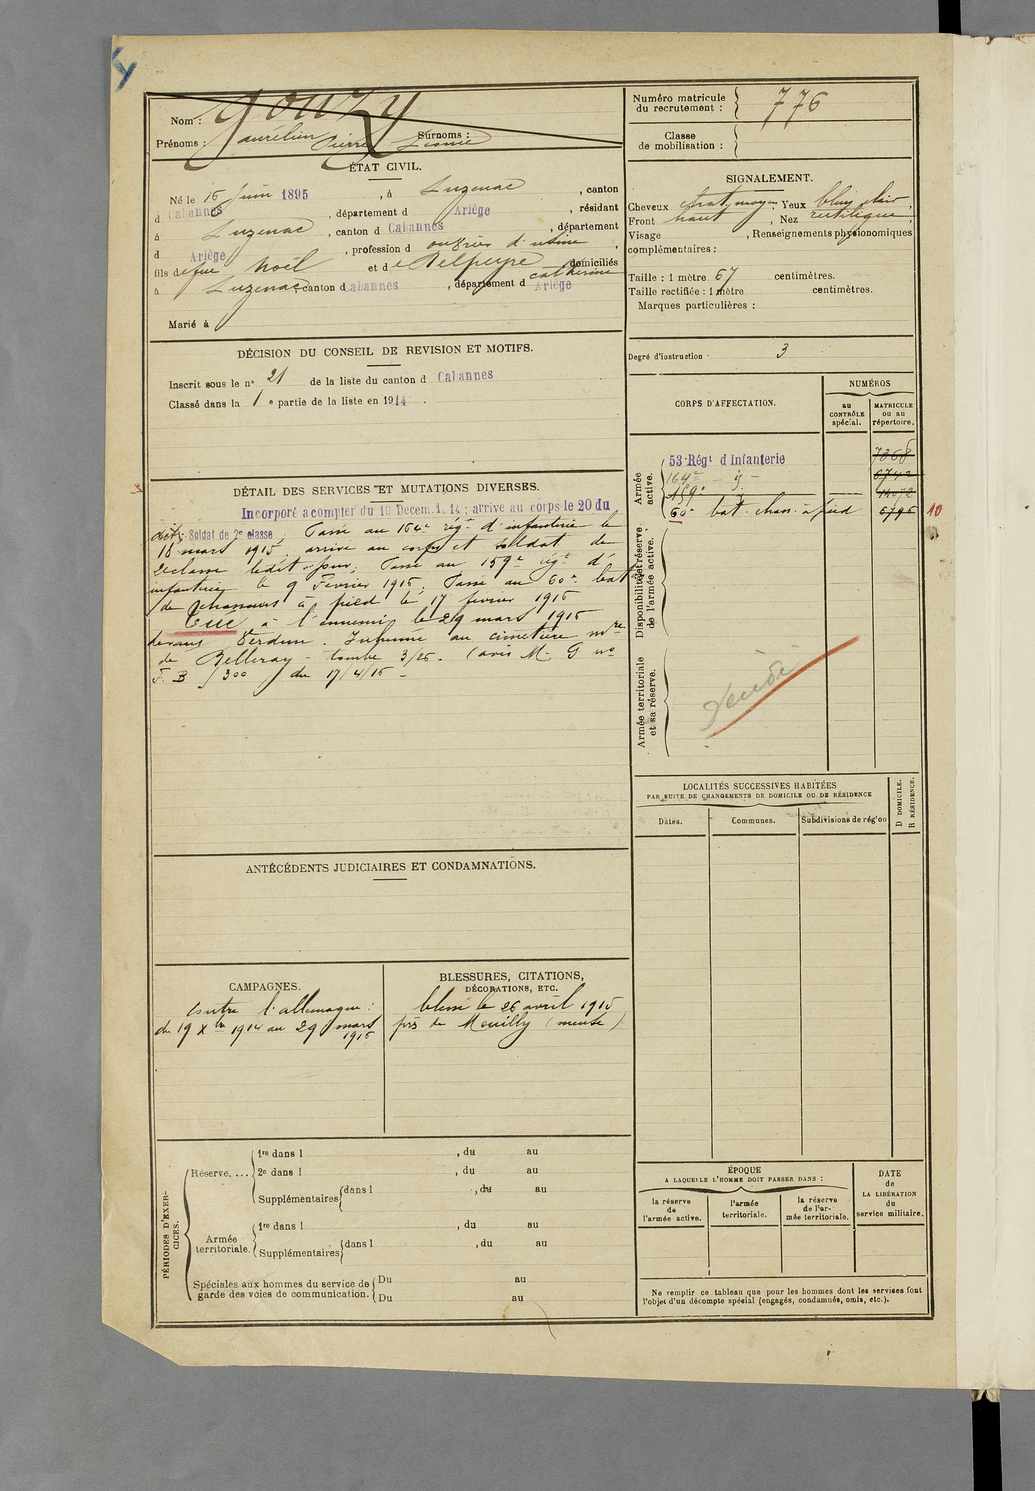 Nom : Gouzy
Prénoms : Aurélien Pierre Surnoms :
ÉTAT CIVIL.
Né le 16 Juin 1895, à Luzenac, canton
d Cabannes, département d Ariège, résidant
à Luzenac, canton d Cabannes, département
d Ariège, profession d ouvrier d'usine,
fils de feu Noël et de Delpeyre Catherine domiciliés
à Luzenac, canton d Cabannes, département d Ariège
Marié à
DÉCISION DU CONSEIL DE REVISION ET MOTIFS.
Inscrit sous le n° 21 de la liste du canton d Cabannes
Classé dans la 1e partie de la liste en 1914.
DÉTAIL DES SERVICES ET MUTATIONS DIVERSES.
Incorporé à compter du 19 Décem. 1914; arrivé au corps le 20 du
dit; Soldat de 2e classe; Passé au 164e régt d'infanterie le
18 mars 1915, arrivé au corps et soldat de
2e classe ledit jour; Passé au 159e régt d'
infanterie le 9 Février 1916; Passé au 60e bat
de chasseurs à pied le 17 février 1916
Tué à l'ennemi le 29 mars 1916
devant Verdun. Inhumé au cimetière mre
de Belleray - tombe 3/26. (avis M. G no
F. B /300 du 17/4/16 -
ANTÉCÉDENTS JUDICIAIRES ET CONDAMNATIONS.
CAMPAGNES.
Contre l'allemagne :
du 19 Xbre 1914 au 29 mars
1916
BLESSURES, CITATIONS,
DÉCORATIONS, ETC.
blessé le 26 avril 1915
près de Mouilly (meuse)
PÉRIODES D'EXERCICES.
Réserve....
1re dans l , du au
2e dans l , du au
Supplémentaires dans l , du au
Armée
territoriale.
1re dans l , du au
Supplémentaires dans l , du au
Spéciales aux hommes du service de
garde des voies de communication.
Du au
Du au
Numéro matricule
du recrutement : 776
Classe
de mobilisation :
SIGNALEMENT.
Cheveux chat. moyen, Yeux bleu clair,
Front haut, Nez rectiligne,
Visage , Renseignements physionomiques
complémentaires :
Taille : 1 mètre 67 centimètres.
Taille rectifiée : 1 mètre centimètres.
Marques particulières :
Degré d'instruction : 3
CORPS D'AFFECTATION.
NUMÉROS
au
CONTRÔLE
spécial.
MATRICULE
ou au
répertoire.
Armée
active.
53e Régt d'Infanterie 7368
164e - 6742
159e 14072
60e bat. chas. à pied 6795 10
Disponibilité et réserve
de l'armée active.
Armée territoriale
et sa réserve.
LOCALITÉS SUCCESSIVES HABITÉES
PAR SUITE DE CHANGEMENTS DE DOMICILE OU DE RÉSIDENCE
Dates.
Communes.
Subdivisions de région
D DOMICILE.
R RÉSIDENCE.
ÉPOQUE
A LAQUELLE L'HOMME DOIT PASSER DANS :
la réserve
de
l'armée active.
l'armée
territoriale.
la réserve
de l'ar-
mée territoriale.
DATE
de
LA LIBÉRATION
du
service militaire.
Ne remplir ce tableau que pour les hommes dont les services font
l'objet d'un décompte spécial (engagés, condamnés, omis, etc.).